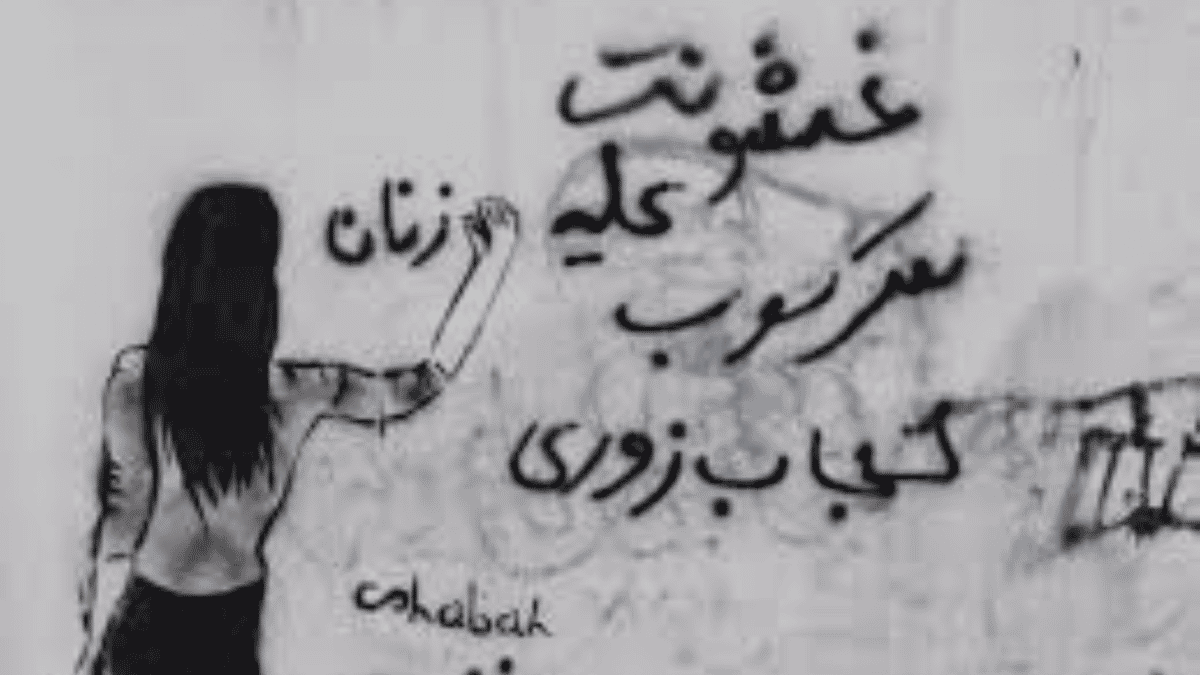 خشونت
علیه زنان
سرکوب
حجاب زوری
shabah